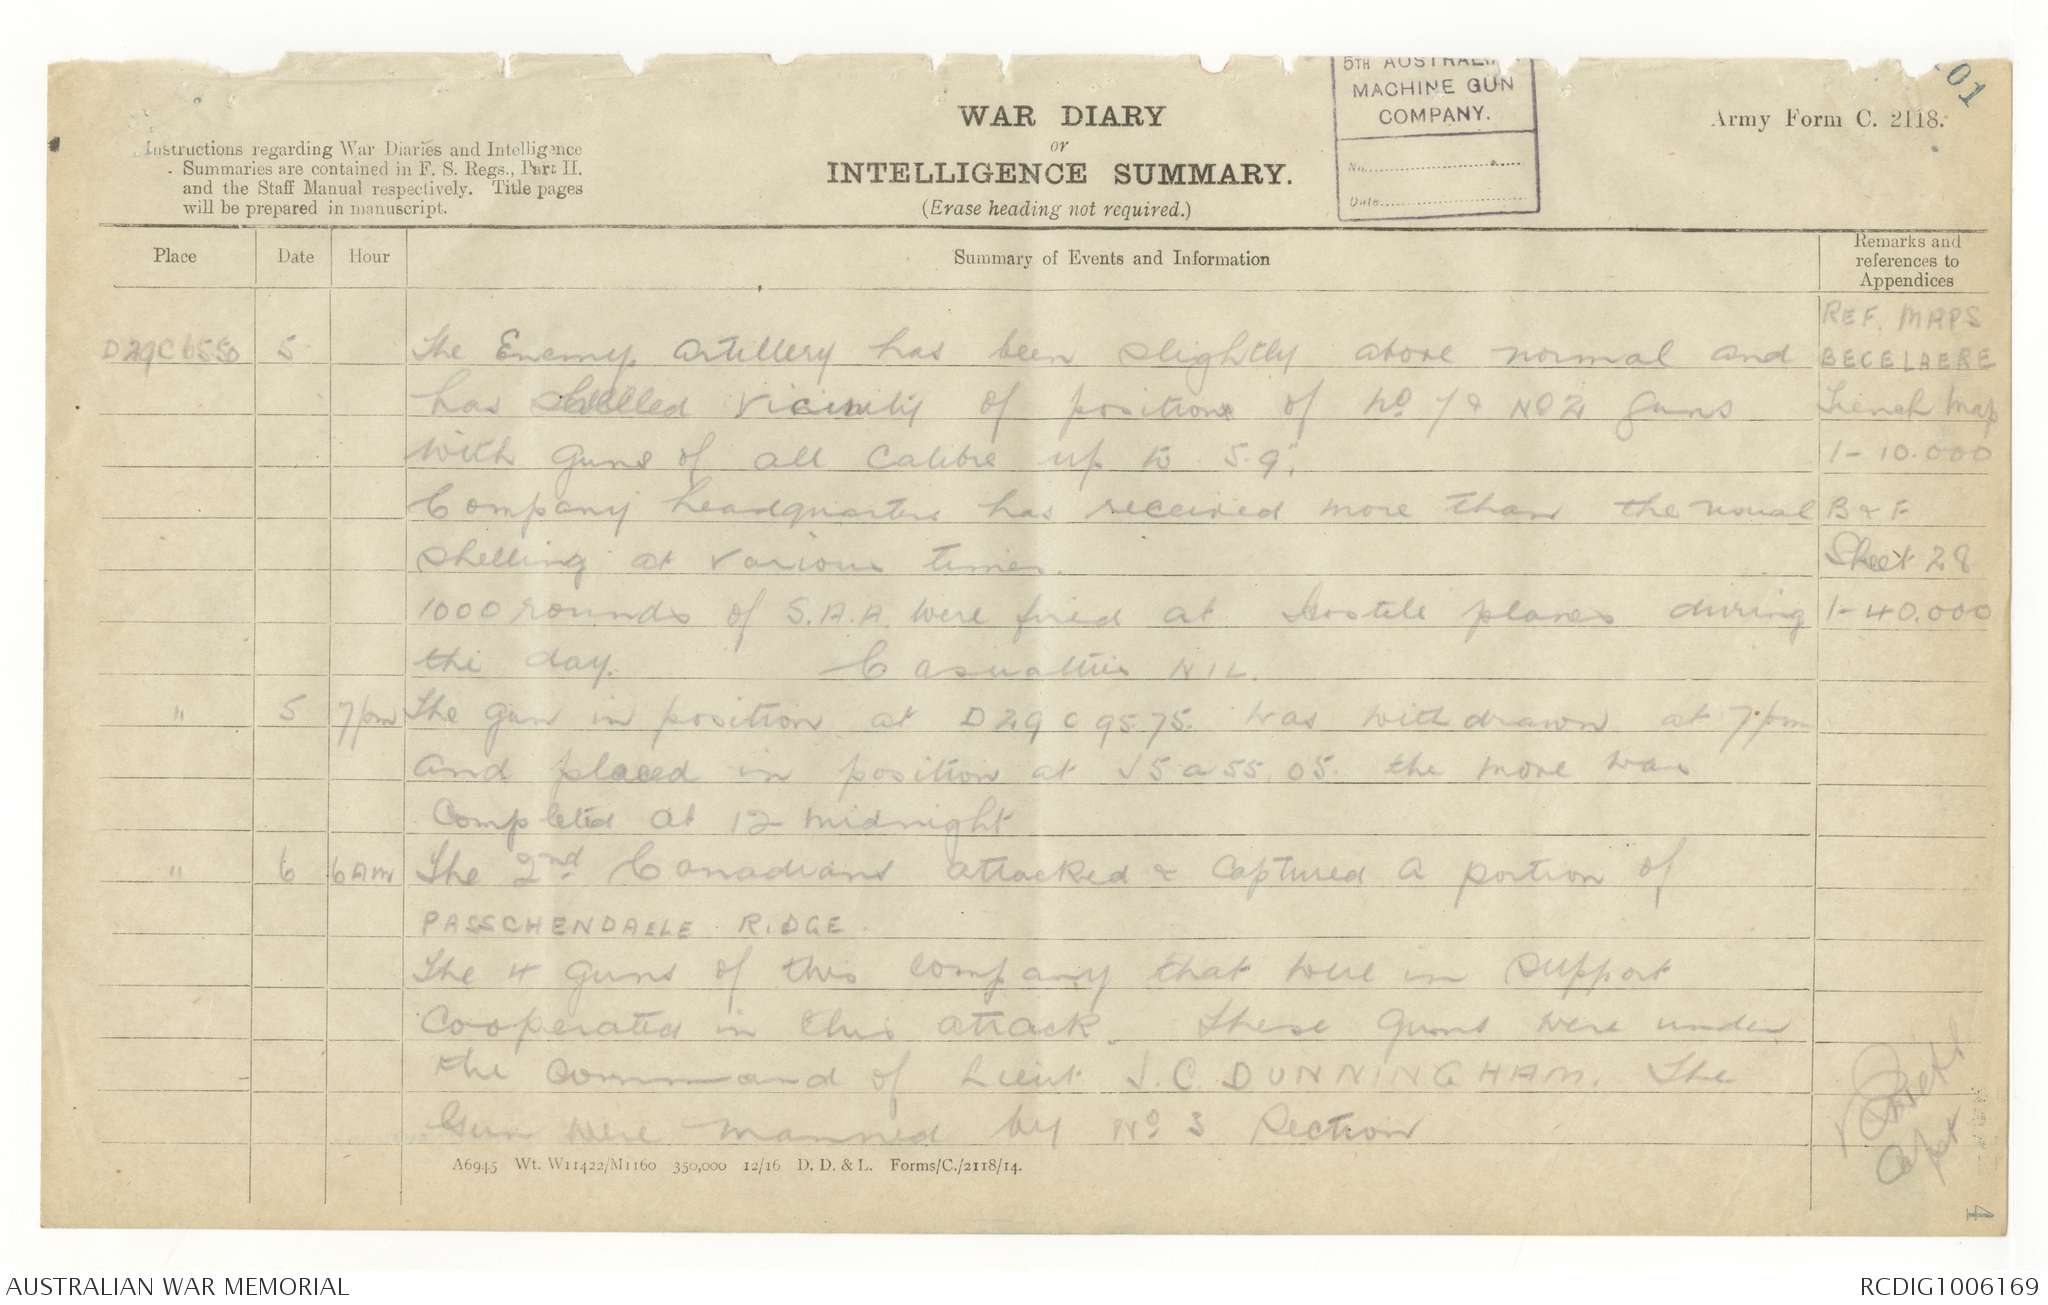 5TH AUSTRALIAN
MACHINE GUN
COMPANY.
No.
Date
WAR DIARY
or
INTELLIGENCE SUMMARY.
(Erase heading not required.)
Army Form C. 2118.
Instructions regarding War Diaries and Intelligence
Summaries are contained in F. S. Regs., Part II.
and the Staff Manual respectively. Title pages
will be prepared in manuscript.
Place Date Hour Summary of Events and Information Remarks and references to Appendices
REF. MAPS
D29C6550 5 The Enemy artillery has been slightly above normal and BECELAERE
has shelled vicinity of positions of No 1 & No 2 guns Trench Map
with guns of all calibre up to 5.9". 1-10.000
Company headquarters has received more than the usual B & F
shelling at various times. Sheet 28
1000 rounds of S.A.A. were fired at hostile planes during 1-40.000
the day. Casualties NIL.
" 5 7pm The gun in position at D29C9575. was withdrawn at 7pm
and placed in position at J5a55.05. the move was
completed at 12 midnight
" 6 6AM The 2nd Canadians attacked & captured a portion of
PASSCHENDAELE RIDGE.
The 4 guns of this company that were in support
cooperated in this attack. These guns were under
the command of Lieut J.C. DUNNINGHAM. The
Gun were manned by No 3 Section
Capt
4
A6945 Wt. W11422/M1160 350,000 12/16 D. D. & L. Forms/C./2118/14.
AUSTRALIAN WAR MEMORIAL
RCDIG1006169